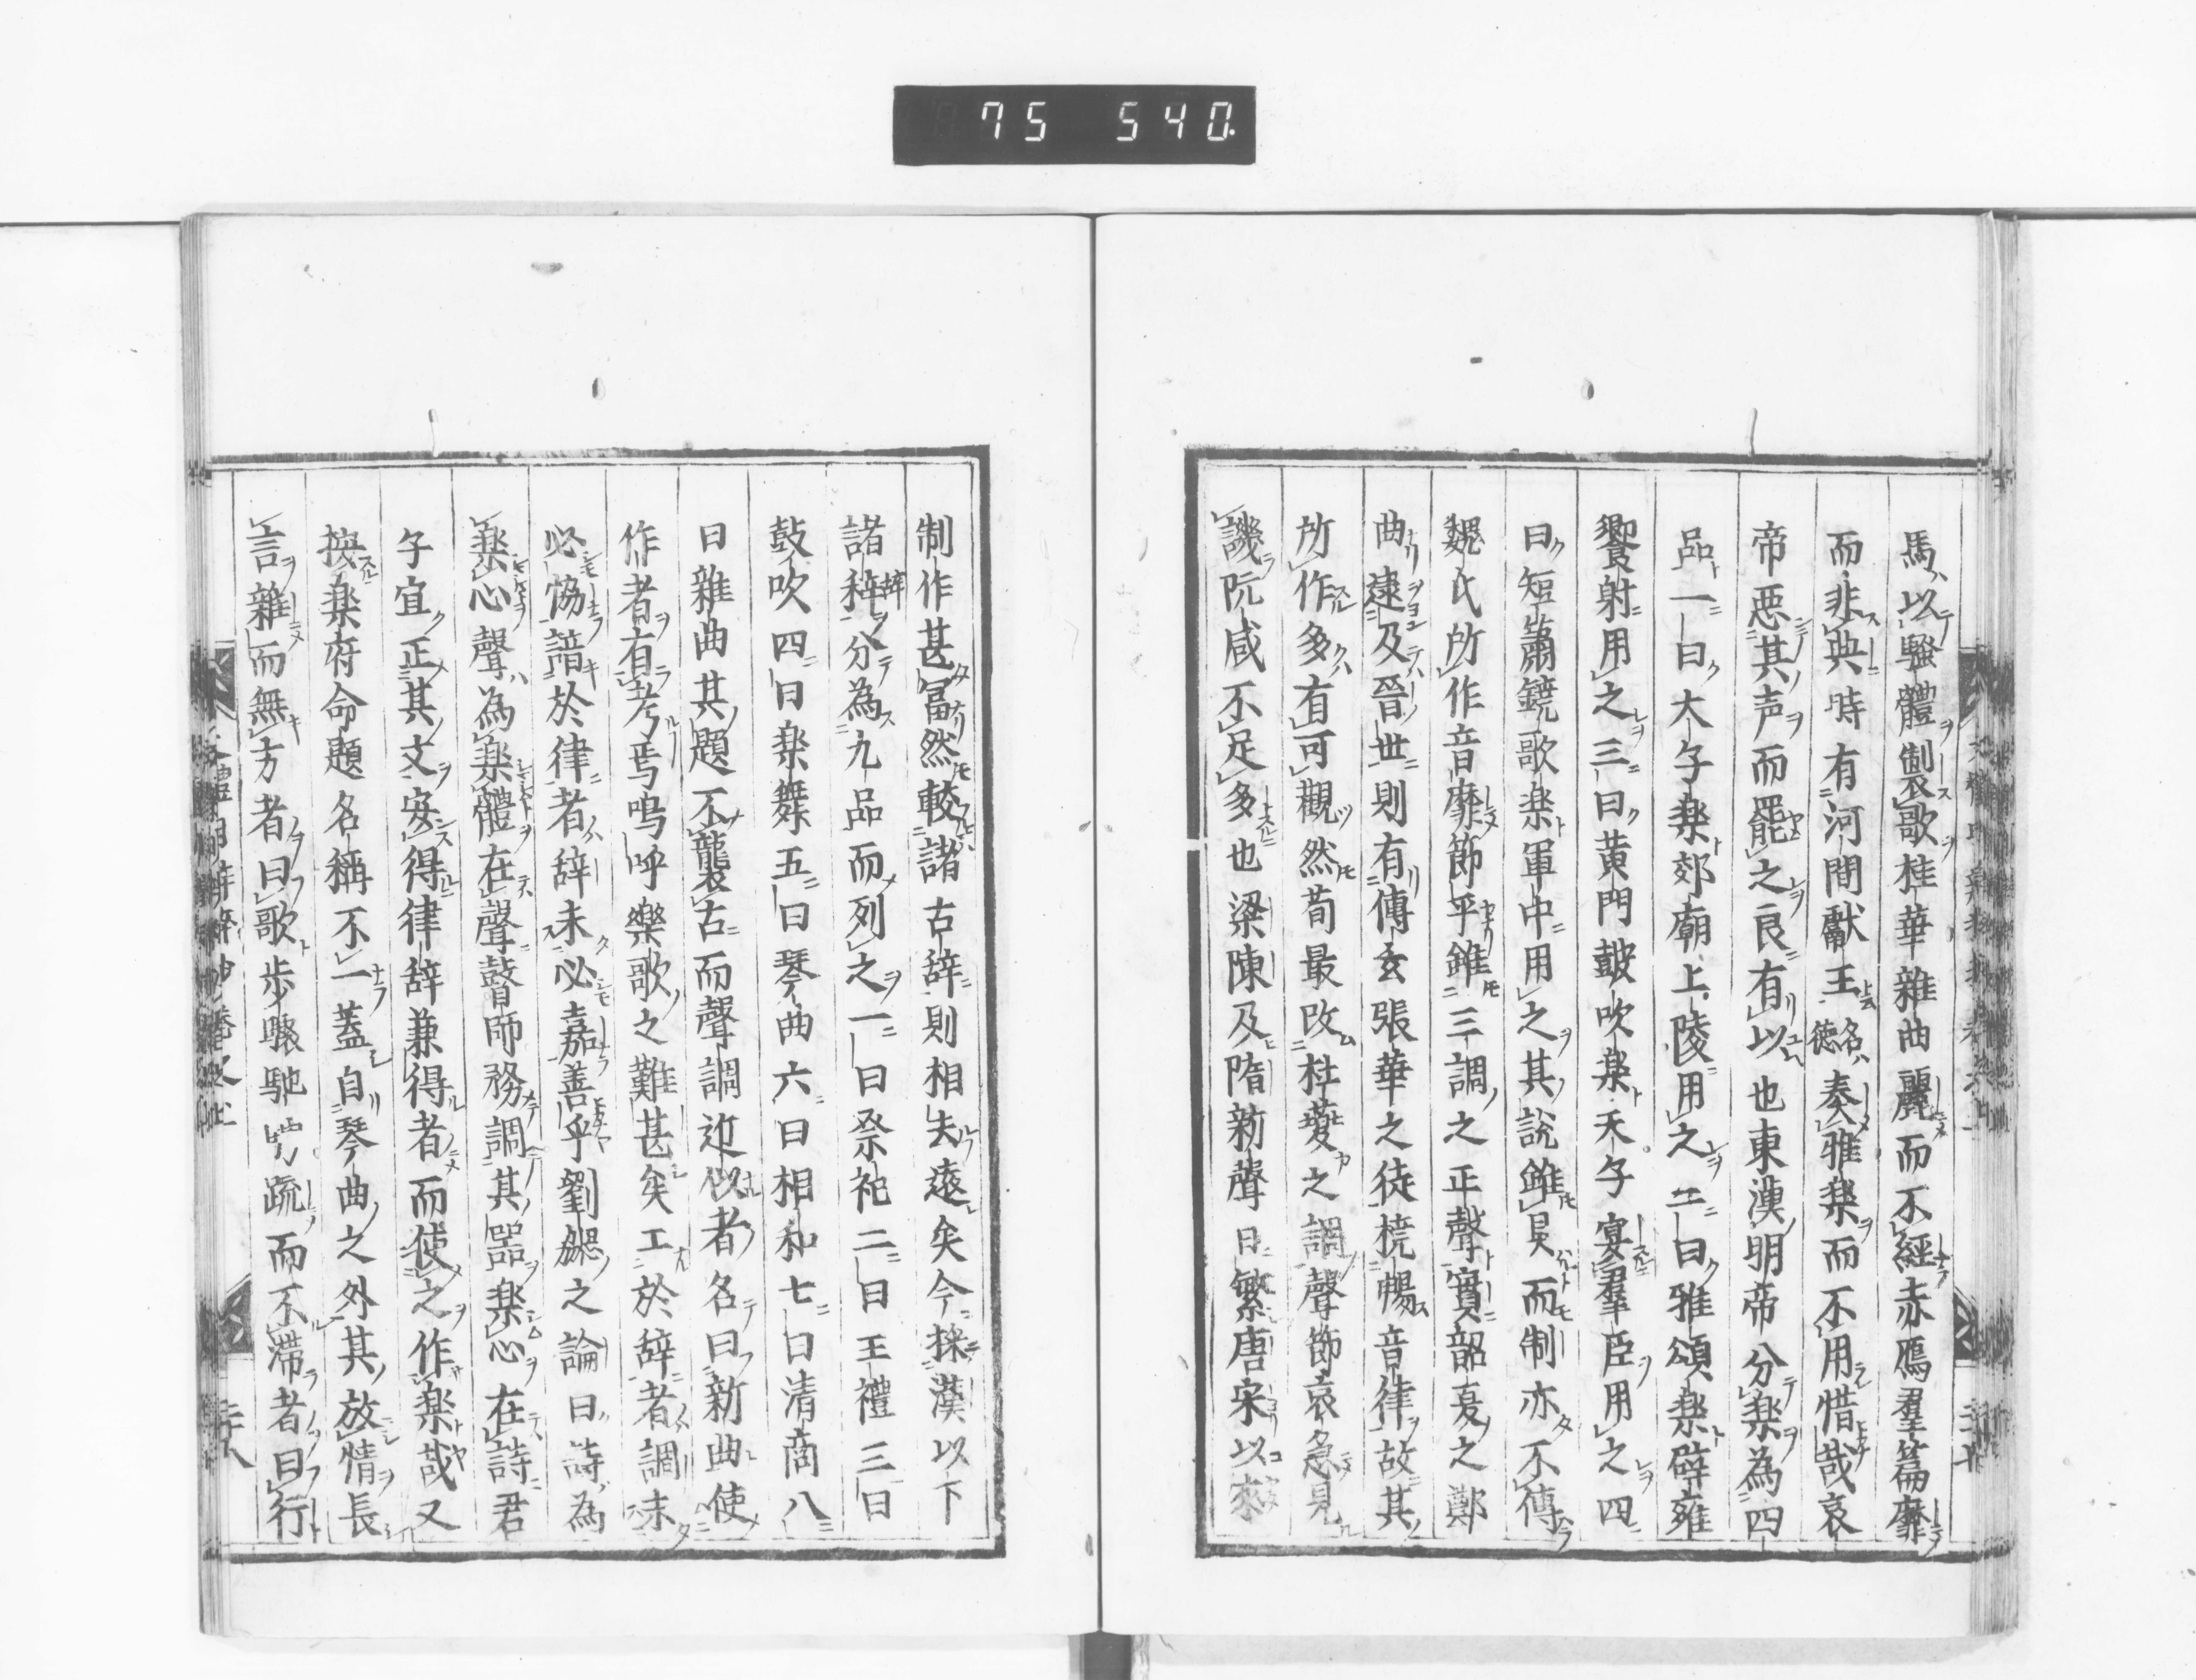 75 540.
馬以騷體製歌桂華雜曲麗而不經赤鴈羣篇靡
而非典時有河間獻王名德奏雅樂而不用惜哉哀
帝惡其声而罷之良有以也東漢明帝分樂為四
品一曰大予樂郊廟上陵用之二曰雅頌樂辟雍
饗射用之三曰黃門皷吹樂天子宴羣臣用之四
曰短簫鐃歌樂軍中用之其說雖具而制亦不傳
魏氏所作音靡節平雖三調之正聲實韶夏之鄭
曲逮及晉世則有傅玄張華之徒梳暢音律故其
所作多有可觀然荀勗改杜夔之調聲節哀急見
譏阮咸不足多也梁陳及隋新聲日繁唐宋以來
制作甚富然較諸古辞則相失遠矣今採漢以下
諸辞分為九品而列之一曰祭祀二曰王禮三曰
鼓吹四曰楽舞五曰琴曲六曰相和七曰清商八
曰雜曲其題不襲古而聲調近似者名曰新曲使
作者有考焉嗚呼樂歌之難甚矣工於辞者調未
必恊諳於律者辞未必嘉善乎劉勰之論曰詩為
楽心聲為楽體在聲瞽師務調其器楽心在詩君
子宜正其文安得律辞兼得者而使之作楽哉又
按楽府命題名稱不一蓋自琴曲之外其放情長
言雜而無方者曰歌步驟馳騁疏而不滯者曰行